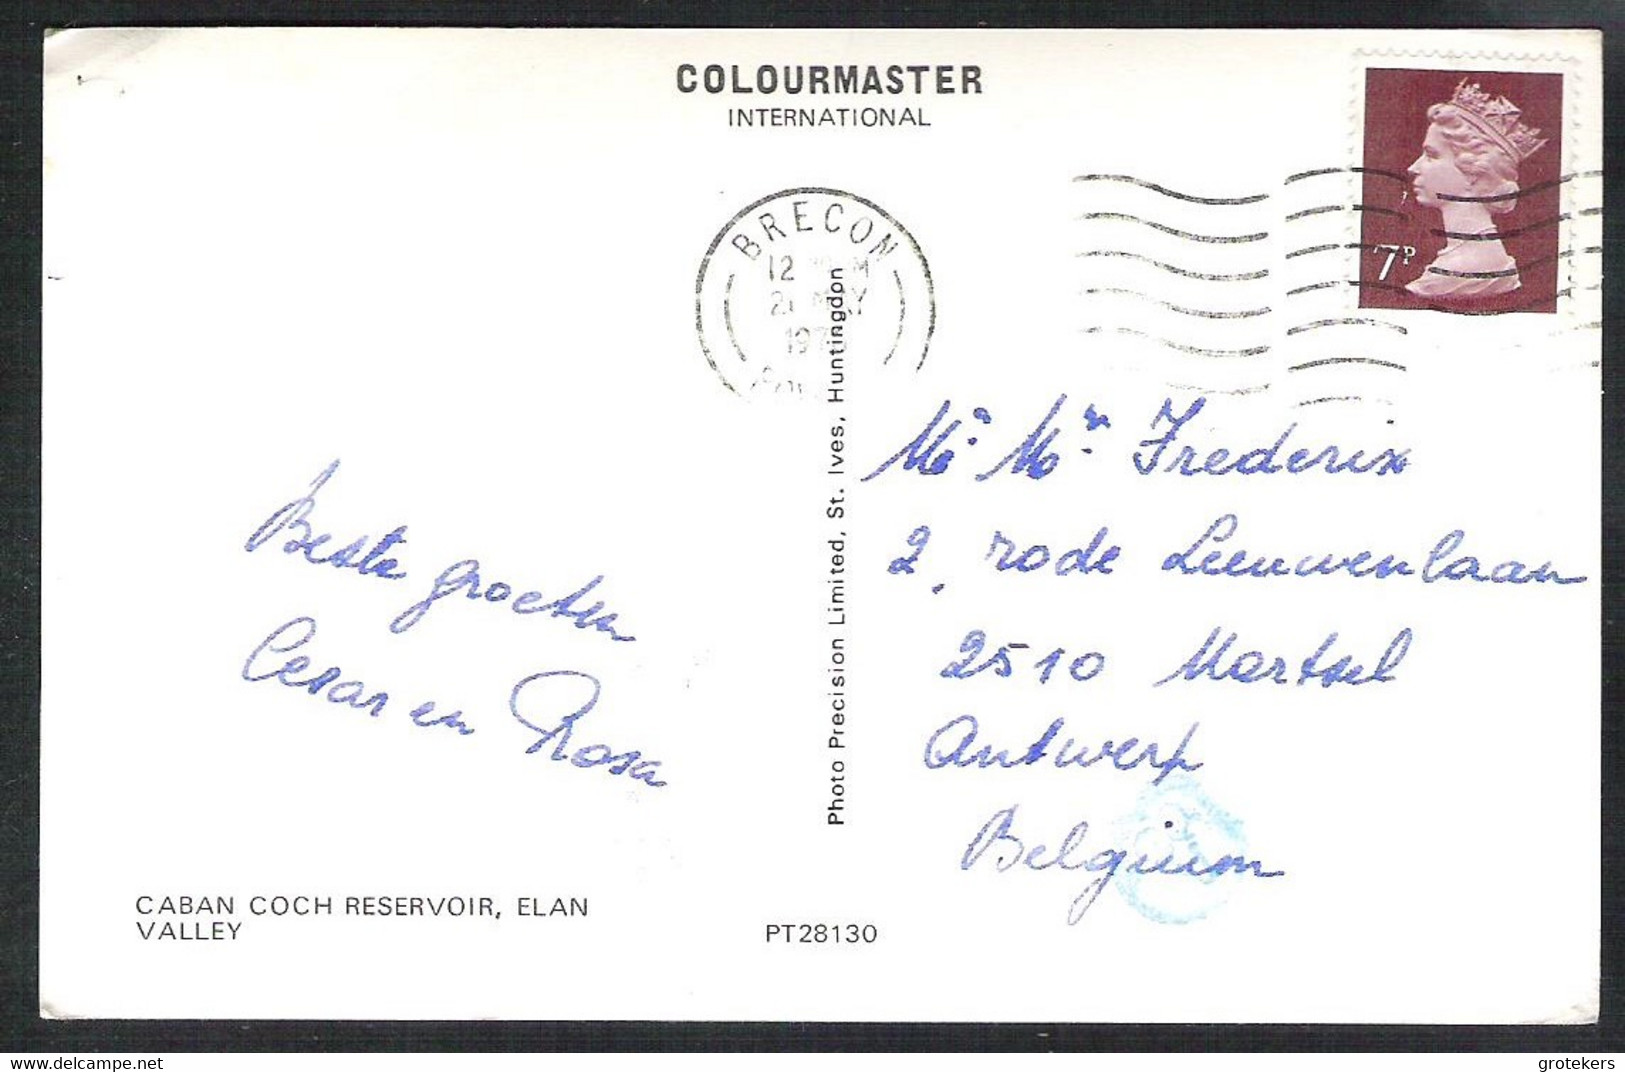 COLOURMASTER
INTERNATIONAL
BRECON
12
MAY
7P
Beste groeten
Cesar en Rosa
CABAN COCH RESERVOIR, ELAN
VALLEY
Photo Precision Limited, St. Ives, Huntingdon
PT28130
Mr Mr Frederix
2, rode Leeuwenlaan
2510 Mortsel
Antwerp
Belgium
grotekers